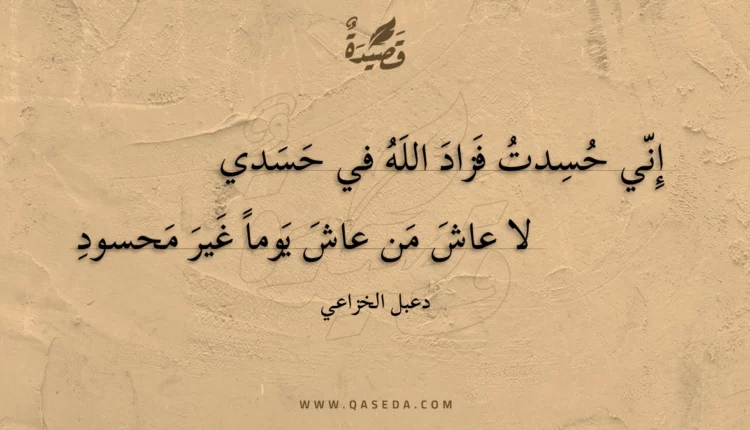 قَصِيدَةٌ
إِنّي حُسِدتُ فَزادَ اللَهُ في حَسَدي
لا عاشَ مَن عاشَ يَوماً غَيرَ مَحسودِ
دعبل الخزاعي
WWW.QASEDA.COM